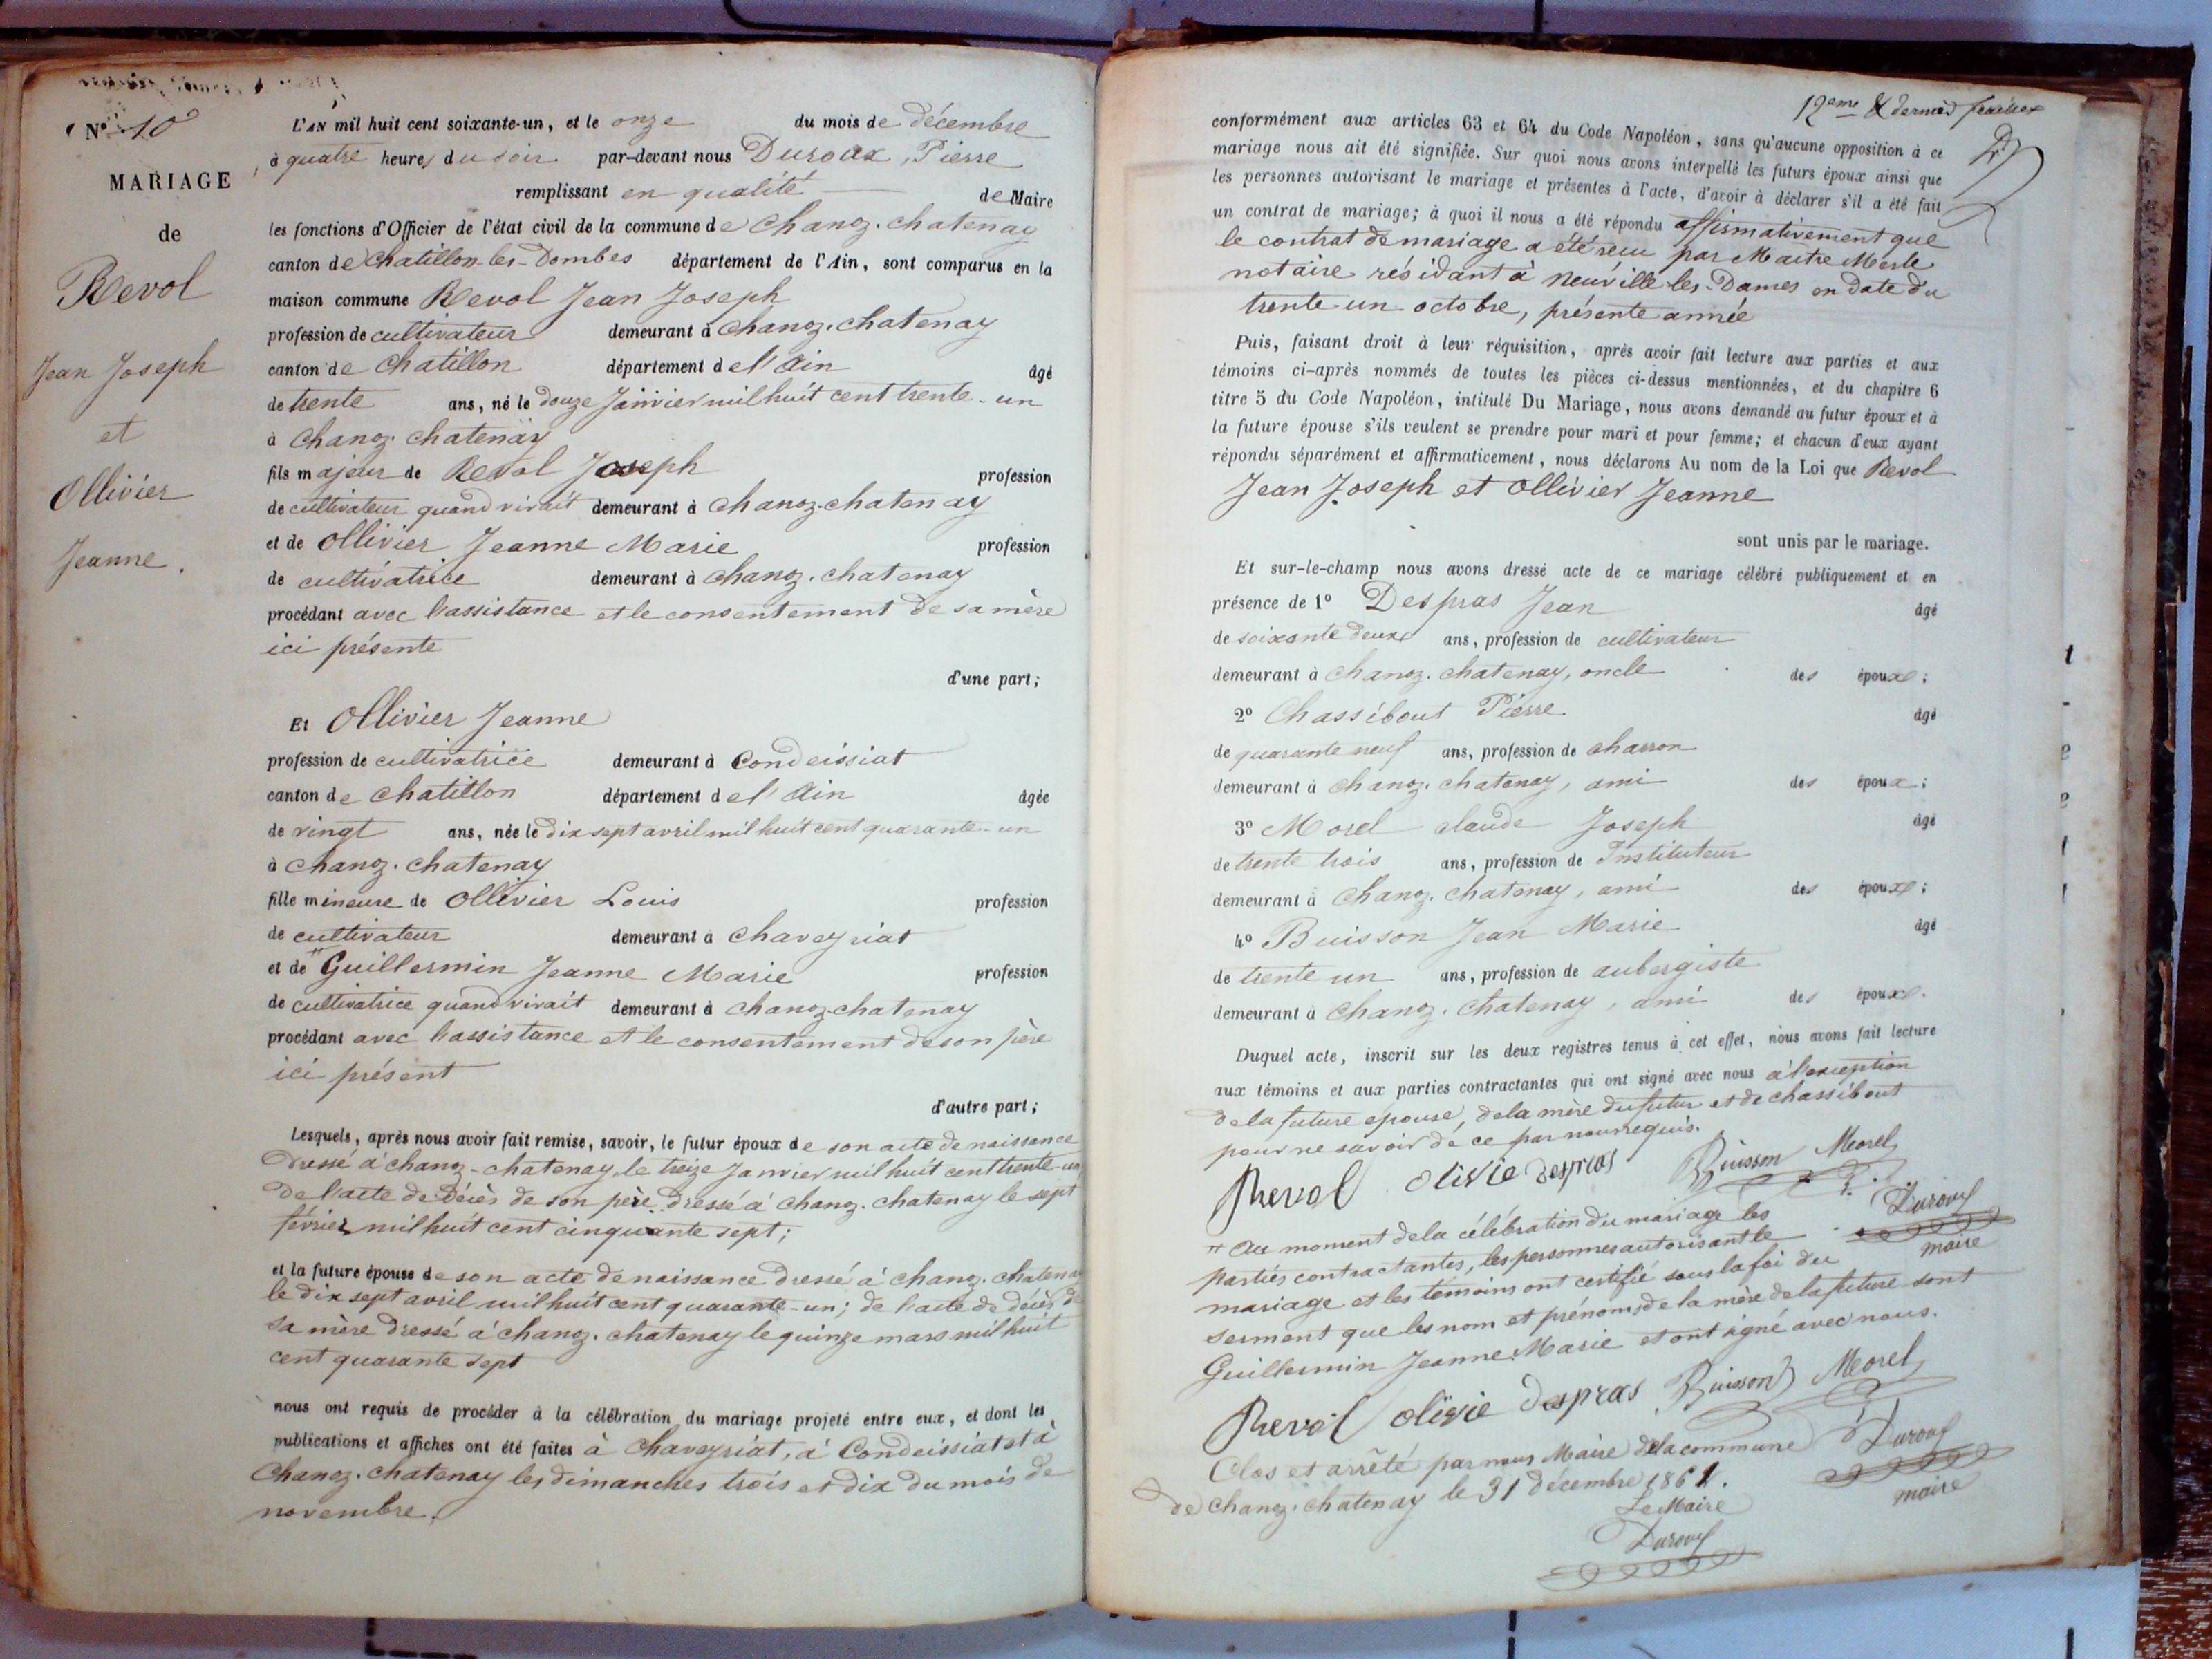 N° 10
MARIAGE
de
Revol
Jean Joseph
et
Ollivier
Jeanne.
L'AN mil huit cent soixante-un, et le onze du mois de décembre
à quatre heures du soir par-devant nous Duroux, Pierre
remplissant en qualité de Maire
les fonctions d'Officier de l'état civil de la commune de Chanoz-chatenay
canton de Chatillon-les-Dombes département de l'Ain, sont comparus en la
maison commune Revol Jean Joseph
profession de cultivateur demeurant à Chanoz-chatenay
canton de Chatillon département de l'Ain âgé
de trente ans, né le douze Janvier mil huit cent trente-un
à Chanoz-chatenay
fils majeur de Revol Joseph profession
de cultivateur quand vivait demeurant à Chanoz-chatenay
et de Ollivier Jeanne Marie profession
de cultivatrice demeurant à Chanoz-chatenay
procédant avec l'assistance et le consentement de sa mère
ici présente
d'une part;
Et Ollivier Jeanne
profession de cultivatrice demeurant à Condeissiat
canton de Chatillon département de l'Ain âgée
de vingt ans, née le dix sept avril mil huit cent quarante-un
à Chanoz-chatenay
fille mineure de Ollivier Louis profession
de cultivateur demeurant à Chaveyriat
et de " Guillermin Jeanne Marie profession
de cultivatrice quand vivait demeurant à Chanoz-chatenay
procédant avec l'assistance et le consentement de son père
ici présent
d'autre part;
Lesquels, après nous avoir fait remise, savoir, le futur époux de son acte de naissance
dressé à chanoz-chatenay, le treize Janvier mil huit cent trente-un
de l'acte de décès de son père dressé à chanoz-chatenay le sept
février mil huit cent cinquante sept;
et la future épouse de son acte de naissance dressé à chanoz-chatenay
le dix sept avril mil huit cent quarante-un; de l'acte de décès de
sa mère dressé à chanoz-chatenay le quinze mars mil huit
cent quarante sept
nous ont requis de procéder à la célébration du mariage projeté entre eux, et dont les
publications et affiches ont été faites à Chaveyriat, à Condeissiat et à
Chanoz-chatenay les dimanches trois et dix du mois de
novembre.
12eme & dernier feuillet
conformément aux articles 63 et 64 du Code Napoléon, sans qu'aucune opposition à ce
mariage nous ait été signifiée. Sur quoi nous avons interpellé les futurs époux ainsi que
les personnes autorisant le mariage et présentes à l'acte, d'avoir à déclarer s'il a été fait
un contrat de mariage; à quoi il nous a été répondu affirmativement que
le contrat de mariage a été reçu par Maître Merle
notaire résidant à Neuville-les-Dames en date du
trente-un octobre, présente année
Puis, faisant droit à leur réquisition, après avoir fait lecture aux parties et aux
témoins ci-après nommés de toutes les pièces ci-dessus mentionnées, et du chapitre 6
titre 5 du Code Napoléon, intitulé Du Mariage, nous avons demandé au futur époux et à
la future épouse s'ils veulent se prendre pour mari et pour femme; et chacun d'eux ayant
répondu séparément et affirmativement, nous déclarons Au nom de la Loi que Revol
Jean Joseph et Ollivier Jeanne
sont unis par le mariage.
Et sur-le-champ nous avons dressé acte de ce mariage célébré publiquement et en
présence de 1° Despras Jean âgé
de soixante deux ans, profession de cultivateur
demeurant à Chanoz-chatenay, oncle des époux;
2° Chassibout Pierre âgé
de quarante neuf ans, profession de charron
demeurant à Chanoz-chatenay, ami des époux;
3° Morel claude Joseph âgé
de trente trois ans, profession de Instituteur
demeurant à Chanoz-chatenay, ami des époux;
4° Buisson Jean Marie âgé
de trente un ans, profession de aubergiste
demeurant à Chanoz-chatenay, ami des époux.
Duquel acte, inscrit sur les deux registres tenus à cet effet, nous avons fait lecture
aux témoins et aux parties contractantes qui ont signé avec nous à l'exception
de la future épouse, de la mère du futur et de chassibout
pour ne savoir de ce par nous requis.
Reval olivie despras Buisson Morel
Duroux
maire
" Au moment de la célébration du mariage les
parties contractantes, les personnes autorisant le
mariage et les témoins ont certifié sous la foi du
serment que les nom et prénoms de la mère de la future sont
Guillermin Jeanne Marie et ont signé avec nous.
Reval olivie despras Buisson Morel
Duroux
maire
Clos et arrêté par nous Maire de la commune
de Chanoz-chatenay le 31 décembre 1861.
Le Maire
Duroux